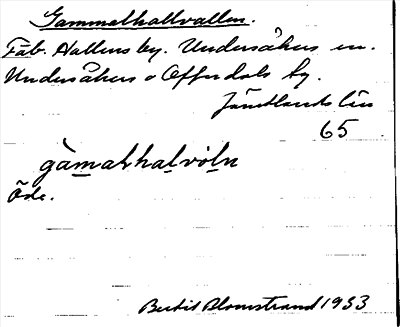 Gammalhallvallen.
Fäb. Hallens by. Undersåkers sn.
Undersåkers o Offerdals tg.
Jämtlands län
65
gàmalhalvòln
Öde.
Bertil Blomstrand 1953